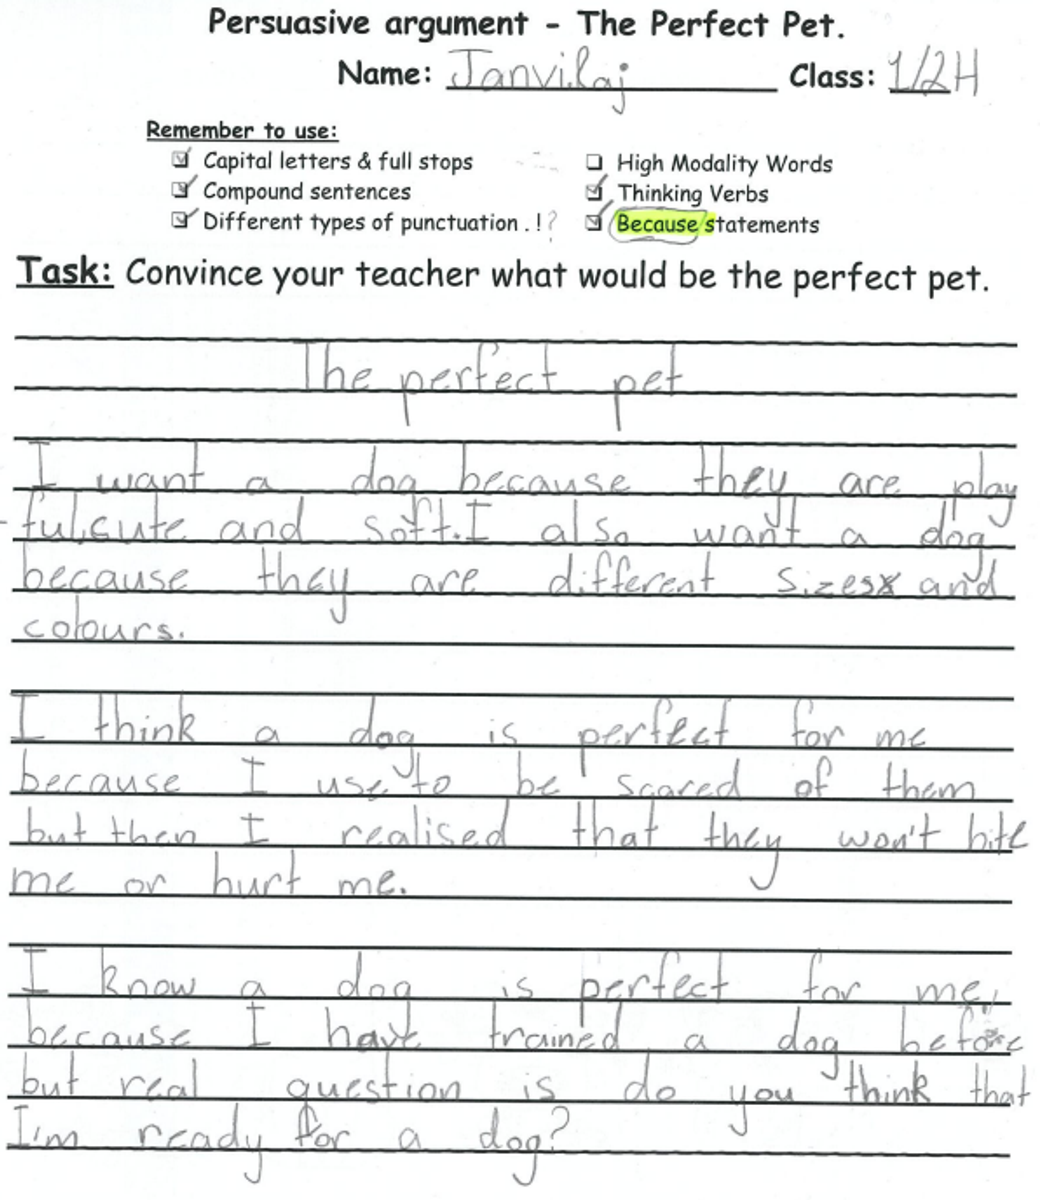 Persuasive argument - The Perfect Pet.
Name: Janvilaj Class: 1/2H
Remember to use:
Capital letters & full stops High Modality Words
Compound sentences Thinking Verbs
Different types of punctuation . ! ? Because statements
Task: Convince your teacher what would be the perfect pet.
The perfect pet
I want a dog because they are play
-ful,cute and soft.I also want a dog
because they are different sizes and
colours.
I think a dog is perfect for me
because I use to be scared of them
but then I realised that they won't bite
me or hurt me.
I know a dog is perfect for me,
because I have trained a dog before
but real question is do you think that
I'm ready for a dog?